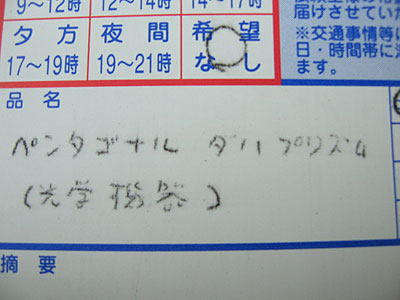 9~12時 12~14時 14~17時
夕方 夜間 希望
17~19時 19~21時 なし
届けさせてい
※交通事情等に
日・時間帯に
ます。
品名
ペンタゴナル ダハプリズム
(光学機器)
摘要